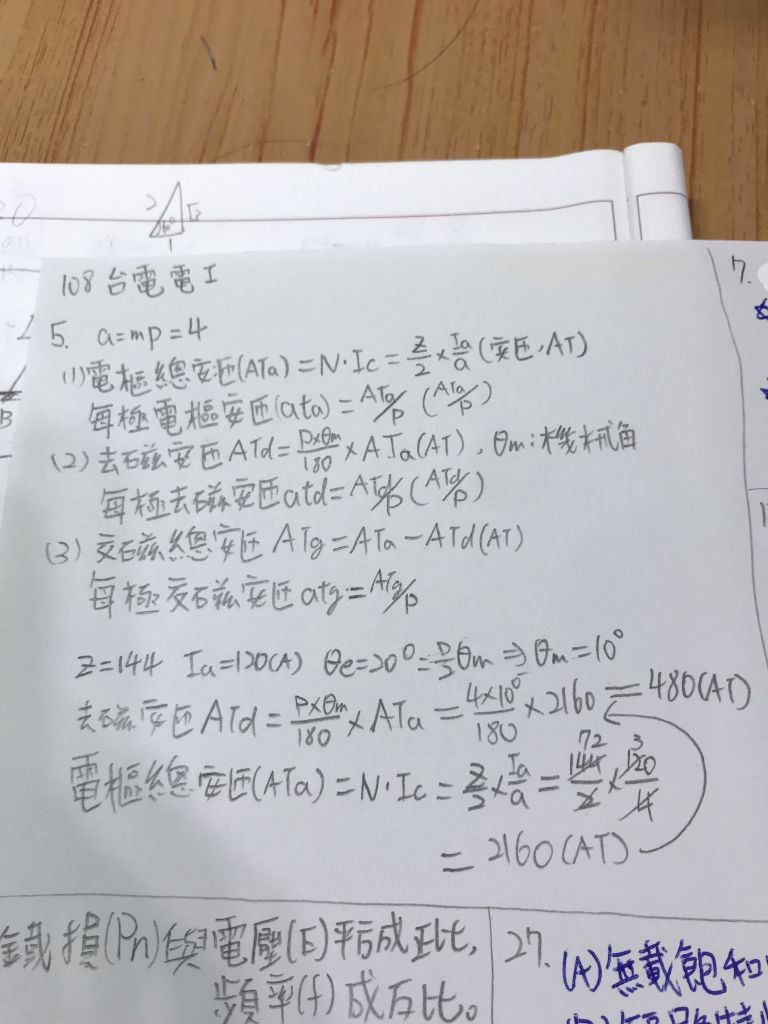 2 √3
60°
1
108 台電電工
5. a=mp=4
(1)電樞總安匝(ATa)=N·Ic=Z/2×Ia/a(安匝,AT)
每極電樞安匝(ata)=ATa/P (ATa/P)
(2)去磁安匝ATd=P×θm/180×ATa(AT), θm:機械角
每極去磁安匝atd=ATd/P(ATd/P)
(3)交磁總安匝ATg=ATa-ATd(AT)
每極交磁安匝atg=ATg/P
Z=144 Ia=120(A) θe=20°=P/2θm⇒θm=10°
去磁安匝ATd=P×θm/180×ATa=4×10°/180×2160=480(AT)
電樞總安匝(ATa)=N·Ic=Z/2×Ia/a=144/2×120/4
72 3
=2160(AT)
鐵損(Pn)與電壓(E)平方成正比,
頻率(f)成反比。
7.
27.
(A)無載飽和
B